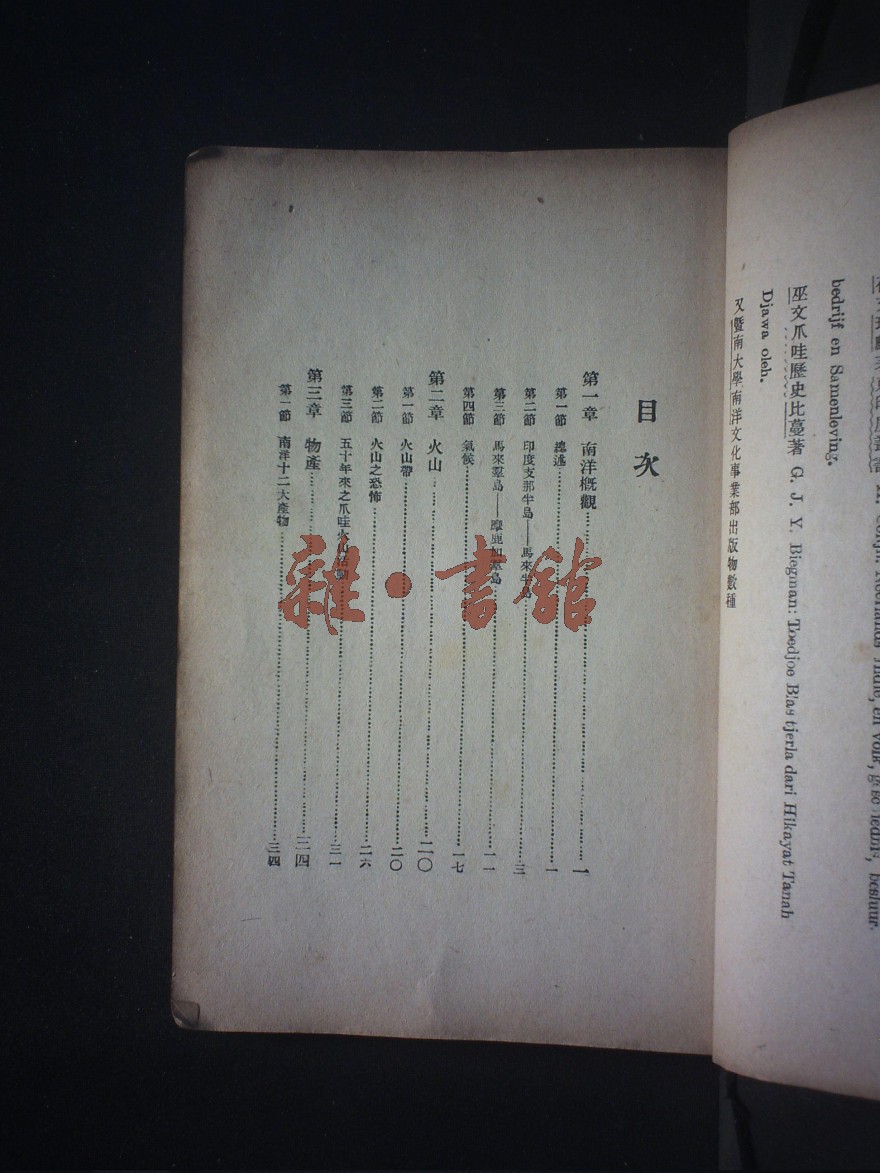 又暨南大學南洋文化事業部出版物數種
Djawa oleh.
巫文爪哇歷史比蔓著 G. J. Y. Biegman: Toedjoe Blas tjerla dari Hikayat Tanah
bedrijf en Samenleving.
目次
第一章 南洋概觀……一
第一節 總述……一
第二節 印度支那半島——馬來半島……三
第三節 馬來羣島——摩鹿加羣島……一一
第四節 氣候……一七
第二章 火山……二〇
第一節 火山帶……二〇
第二節 火山之恐怖……二六
第三節 五十年來之爪哇火山活動……三一
第三章 物產……三四
第一節 南洋十二大產物……三四
雜·書館